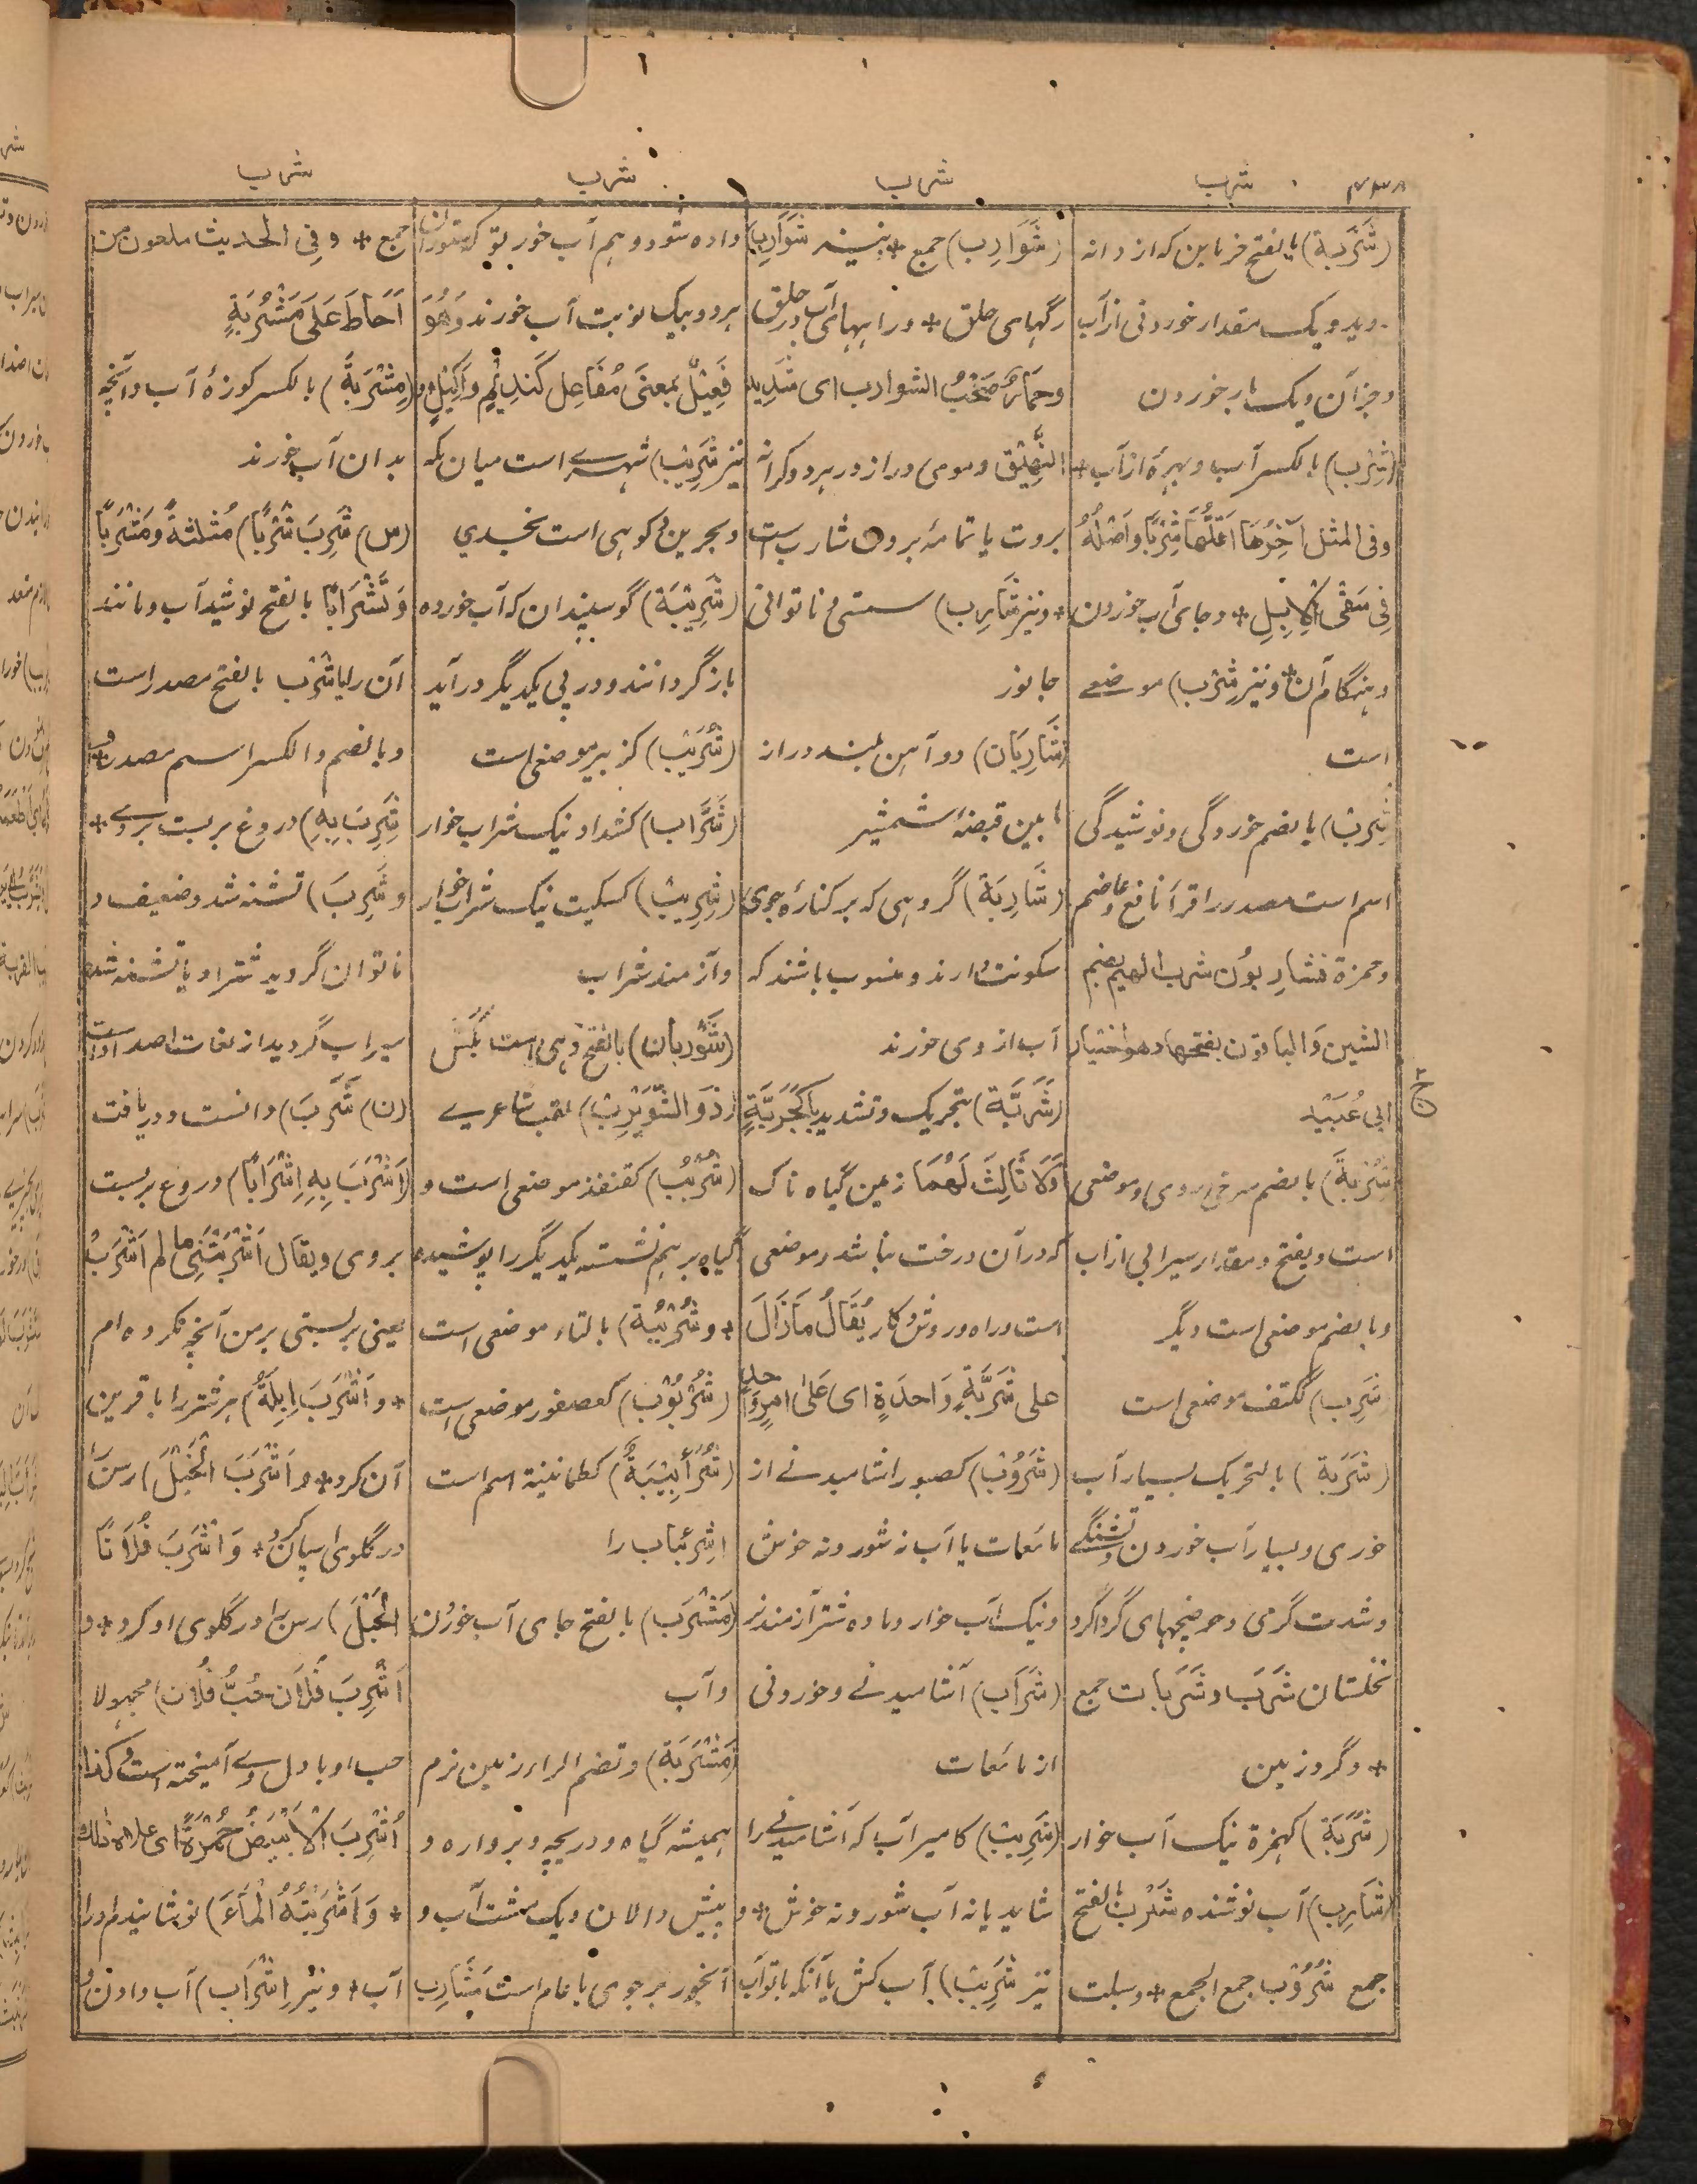 شرب
شرب
شرب
شرب
(شَرْبَة) بالفتح خرما بن که از دانه
روید و یک مقدار خوردنی از آب
و جز آن و یک بار خوردن
(شِرْب) بالکسر آب و بهرهٔ از آب +
وفی المثل آخِرُهَا اَقَلُّهَا شِرْبًا وَاَصْلُهُ
فِی سَقْیِ الْاِبِلِ + و جای آب خوردن
و هنگام آن + و نیز شِرْب) موضعی
است
شُرْب) بالضم خوردگی و نوشیدگی
اسم است مصدر را قرأ نافع و عاصم
وحمزة فشاربون شرب الهیم بضم
الشین والباقون بفتحها وهو اختیار
ابی عُبَیْد
شُرْبَة) بالضم سرخی روی و موضعی
است و یفتح و مقدار سیرابی از آب
و بالضم موضعی است دیگر
شَرِب) ککتف موضعی است
(شَرَبَة) بالتحریک بسیار آب
خوری و بسیار آب خوردن و تشنگے
و شدت گرمی و حوضچهای گرداگرد
نخلستان شَرَب و شَرَبات جمع
+ و گرو زمین
(شُرَبَة) کهمزة نیک آب خوار
(شَارِب) آب نوشنده شَرْب بالفتح
جمع شُرُوْب جمع الجمع + و سبلت
(شَوَارِب) جمع + نیز شَوَارِب)
رگهای حلق + و راههای آب در حلق
وحِمَارٌ صَخْبُ الشوارب ای شَدِید
النَّهِیْق و موی دراز در هر دو کرانه
بروت یا تمامهٔ بروت شارب است
+ و نیز شَارِب) سستی و ناتوانی
جانور
(شَارِبَان) دو آهن بلند دراز
مابین قبضهٔ شمشیر
(شَارِبَة) گروهی که بر کنارهٔ جوی
سکونت دارند و منسوب باشند که
آب از وی خورند
(شَرَبَّة) بتحریک و تشدید با کَجَرَبَّةٍ
وَلَا ثَالِثَ لَهُمَا زمین گیاه ناک
که در آن درخت نباشد و موضعی
است و راه و روش و کار یُقَالُ مَازَالَ
علی شَرَبَّةٍ وَاحِدَةٍ ای عَلٰی اَمْرٍ وَاحِدٍ
(شَرُوْب) کصبور اشامیدنے از
مائعات یا آب نه شور و نه خوش
و نیک آب خوار و ماده شتر آزمند نر
(شَرَاب) آشامیدنے و خوردنی
از مائعات
(شَرِیْب) کامیر آب که آشامیدنے را
شاید یا نه آب شور و نه خوش + و
نیز شَرِیْب) آب کش یا آنکه با تو آب
داده شود و هم آب خور بتو که ستوران
هر دو بیک نوبت آب خورند وَهُوَ
فَعِیْلٌ بمعنَی مُفَاعِل کَنَدِیْمٍ وَاَکِیْلٍ و
نیز شَرِیْب) شهرے است میان مکه
و بحرین و کوهی است نجدی
(شَرِیْبَة) گوسپندان که آب خورده
بازگردانند و در پی یکدیگر در آید
(شُرَیْب) کزبیر موضعی است
(شَرَّاب) کشداد نیک شراب خوار
(شِرِّیْب) کسکیت نیک شراب خوار
و آزمند شراب
(شَوْربان) بالفتح دهی است بکش
(ذو الشُّوَیْرِب) لقب شاعرے
(شُرْبُب) کقنفذ موضعی است و
گیاه بر هم نشسته یکدیگر را پوشیده
+ و شُرْبُبَة) بالتاء موضعی است
(شُرْبُوْب) کعصفور موضعی است
(شُرَأْبِیْبَةٌ) کطمانینة اسم است
اشرئباب را
(مَشْرَب) بالفتح جای آب خوردن
و آب
(مَشْرَبَة) وتضم الراء زمین نرم
همیشه گیاه و دریچه و برواره و
پیش دالان و یک مشت آب و
آبخور بر جوی یا عام است مَشَارِب
جمع + وفی الحدیث ملعون من
اَحَاطَ عَلَی مَشْرَبَةٍ
(مِشْرَبَة) بالکسر کوزهٔ آب و آنچه
بدان آب خورند
(س) شَرِبَ شُرْبًا) مُثلثةً وَمَشْرَبًا
وَتَشْرَابًا بالفتح نوشید آب و مانند
آن را یا شَرْب بالفتح مصدر است
و بالضم والکسر اسم مصدر +
شَرِبَ بِهِ) دروغ بر بست بروے +
و شَرِبَ) تشنه شد و ضعیف و
ناتوان گردید شتر او یا تشنه شد
سیراب گردید از لغات اضداد است
(ن) شَرَبَ) دانست و دریافت
(اَشْرَبَ بِهِ اِشْرَابًا) دروغ بر بست
بروی و یقال اَشْرَبْتَنِی مالم اَشْرَبْ
یعنی بر بستی بر من آنچه نکرده ام
+ و اَشْرَبَ اِبِلَهُ) هر شتر را با قرین
آن کرد + و اَشْرَبَ الْخَیْلَ) رسن
در گلوی اسپان کرد + وَاَشْرَبَ فُلَانًا
الْحَبْلَ) رسن را در گلوی او کرد + و
اُشْرِبَ فُلَان حُبَّ فُلَان) مجهولا
حب او با دل وے آمیخته است و کذا
اُشْرِبَ الْاَبْیَضُ حُمْرَةً ای علاه ذلك
+ وَاَشْرَبْتُهُ الْمَاءَ) نوشانیدم او را
آب + و نیز اِشْرَاب) آب دادن و